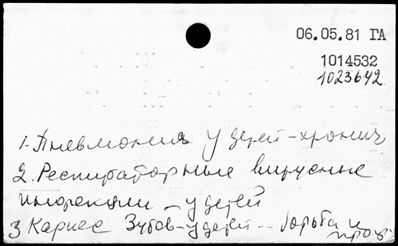 06.05.81 ГА
1014532
1023642
1. Пневмония у детей - хронич
2. Респираторные вирусные
инфекции - у детей
3 Кариес Зубов - у детей - борьба и
проф